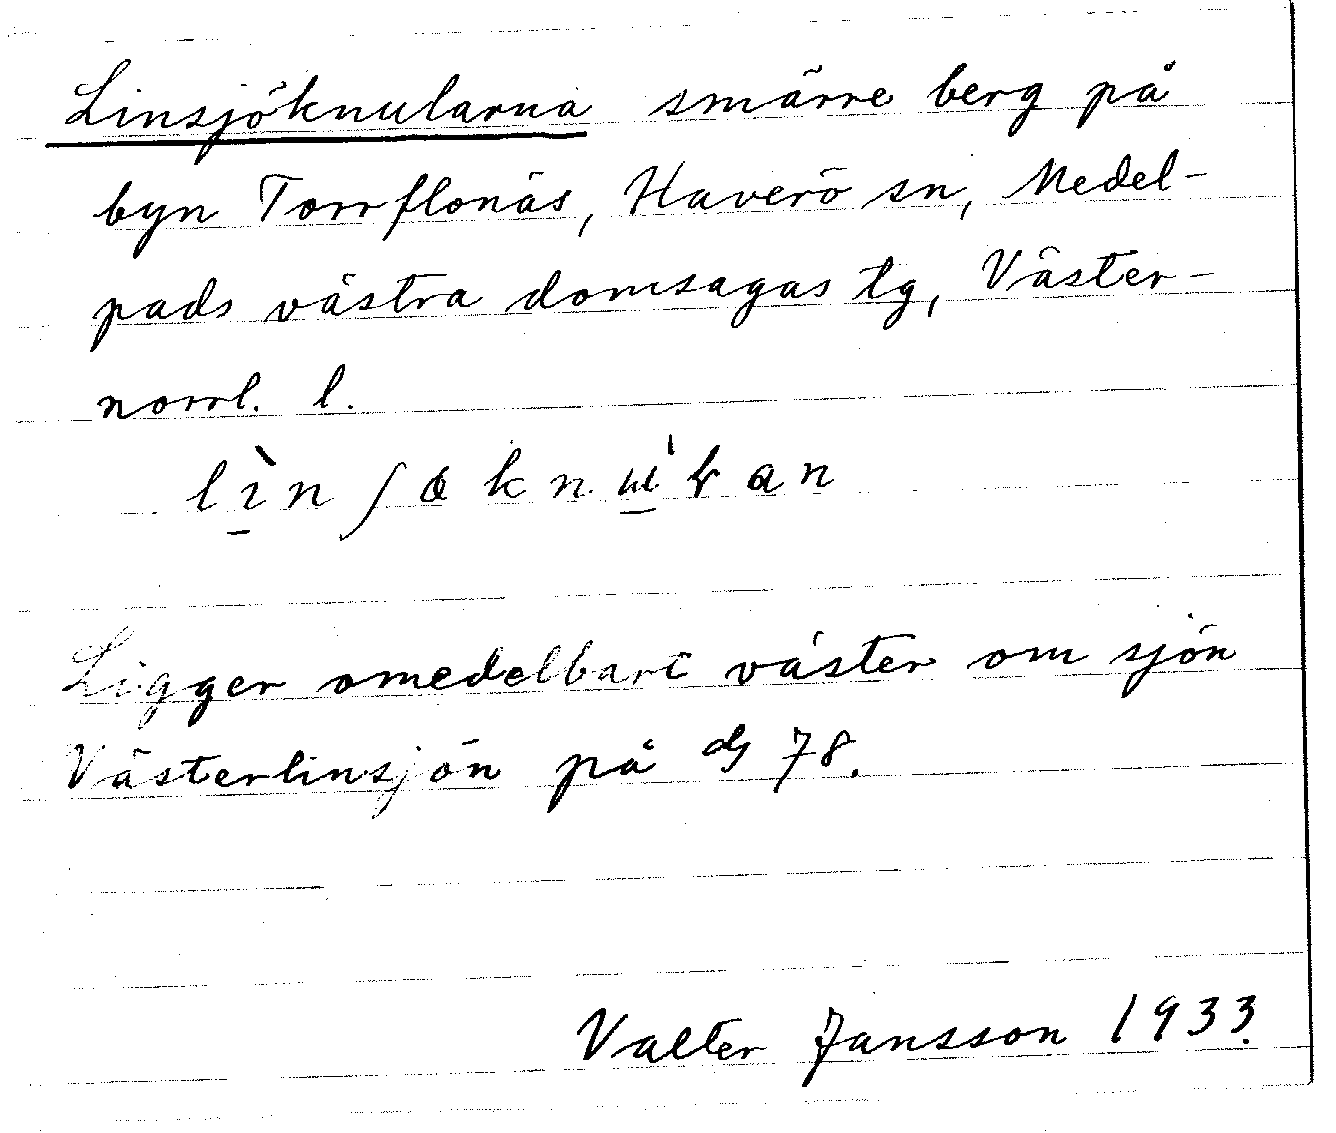 Linsjöknularna smärre berg på
byn Torrflonäs, Haverö sn, Medel-
pads västra domsagas tg, Väster-
norrl. l.
Ligger omedelbart väster om sjön
Västerlinsjön på 78.
Valter Jansson 1933.